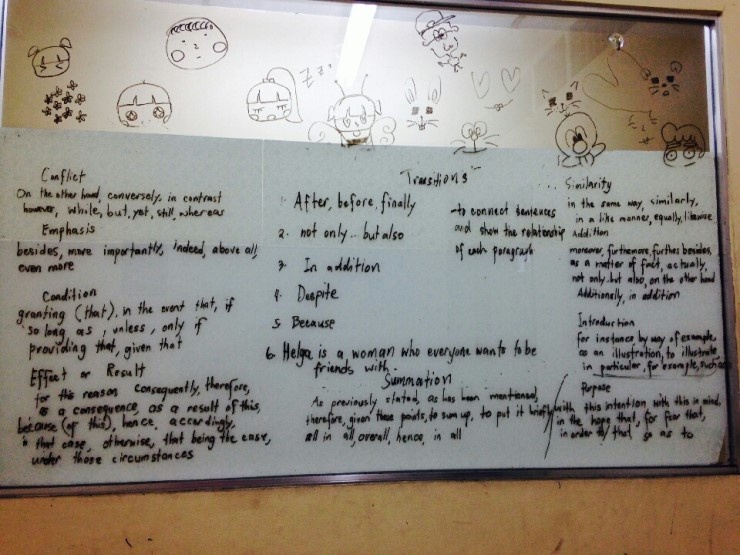 Zzz
Conflict
On the other hand, conversely, in contrast
however, whole, but, yet, still, whereas
Emphasis
besides, more importantly, indeed, above all,
even more
Condition
granting (that), in the event that, if
so long as, unless, only if
providing that, given that
Effect or Result
for this reason consequently, therefore,
as a consequence, as a result of this,
because (of this), hence, accordingly,
in that case, otherwise, that being the case,
under those circumstances
Transitions
1. After, before, finally
2. not only... but also
3. In addition
4. Despite
5. Because
6. Helga is a woman who everyone wants to be
friends with.
-to connect sentences
and show the relationship
of each paragraph
Summation
As previously stated, as has been mentioned,
therefore, given these points, to sum up, to put it briefly
all in all, overall, hence, in all
... Similarity
in the same way, similarly,
in a like manner, equally, likewise
Addition
moreover, furthermore, further, besides,
as a matter of fact, actually,
not only but also, on the other hand
Additionally, in addition
Introduction
for instance by way of example,
as an illustration, to illustrate
in particular, for example, such as
Purpose
with this intention with this in mind,
in the hope that, for fear that,
in order that, so as to